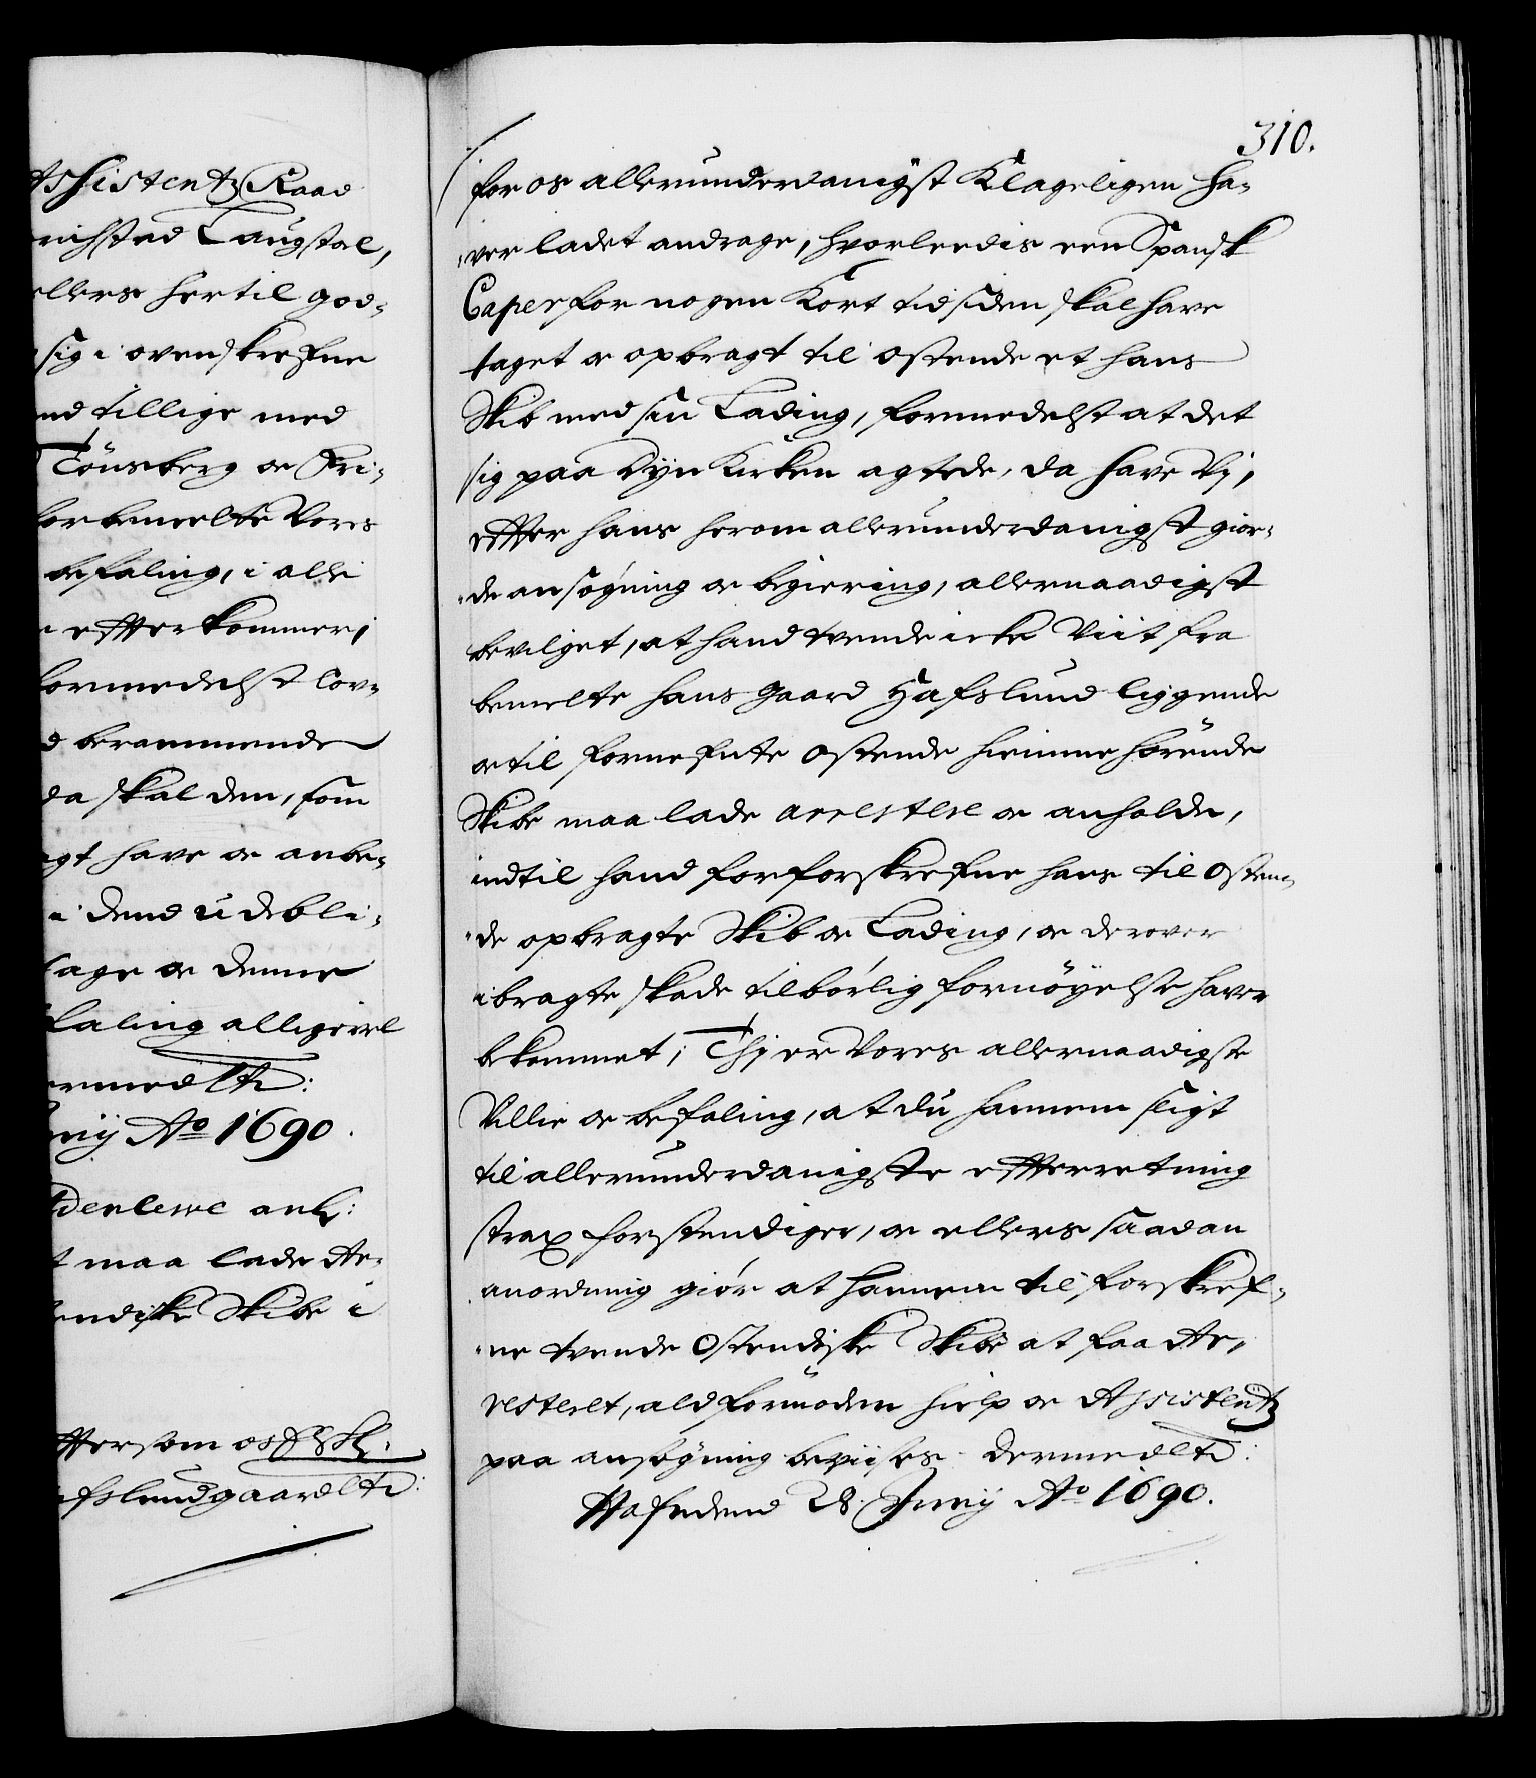 Assistentz Raad
richstad Laugstol,
ellers hertil god-
sig i ovenskrefne
nd tillige med
Tönsberg oc Fri-
forbemeelte Vores
befaling, i alle
efterkommer,
formedelst Lov-
d berammende
da skal den, som
gt have oc anbe-
i dend udebli-
lage oc denne
faling alligevel
ermed etc:
nij Ao 1690.
t maa lade Ar-
endiske Skibe i
ftersom os
afslundgaard etc:
310.
for os allerunderdanigst Klageligen ha-
-ver ladet andrage, hvorleedis een Spansk
Caper for nogen Kort tid siden skal have
taget oc opbragt til Ostende et hans
Skib med sin Lading, formedelst at det
sig paa Dynkirken agtede, da have Vj,
efter hans herom allerunderdanigst gior-
-de ansøgning oc begiering, allernaadigst
bevilget, at hand tvende icke Viit fra
bemelte hans gaard Hafslund liggende
oc til fornefnte Ostende hiemmehörende
Skibe maa lade arrestere oc anholde,
indtil hand for forskrefne hans til Osten-
-de opbragte Skib oc Lading, oc derover
ibragte skade tilbørlig fornöyelse haver
bekommet; Thj er Vores allernaadigste
Villie oc befaling, at du hannem sligt
til allerunderdanigste efterretning
strax forstendiger, oc ellers saadan
anordning giør at hannem til forskref-
-ne tvende Ostendiske Skibe at faa Ar-
resteret, ald formoden hielp oc Assistentz
paa ansøgning beviises. Dermed etc:
Hafn dend 28. Junij Ao 1690.